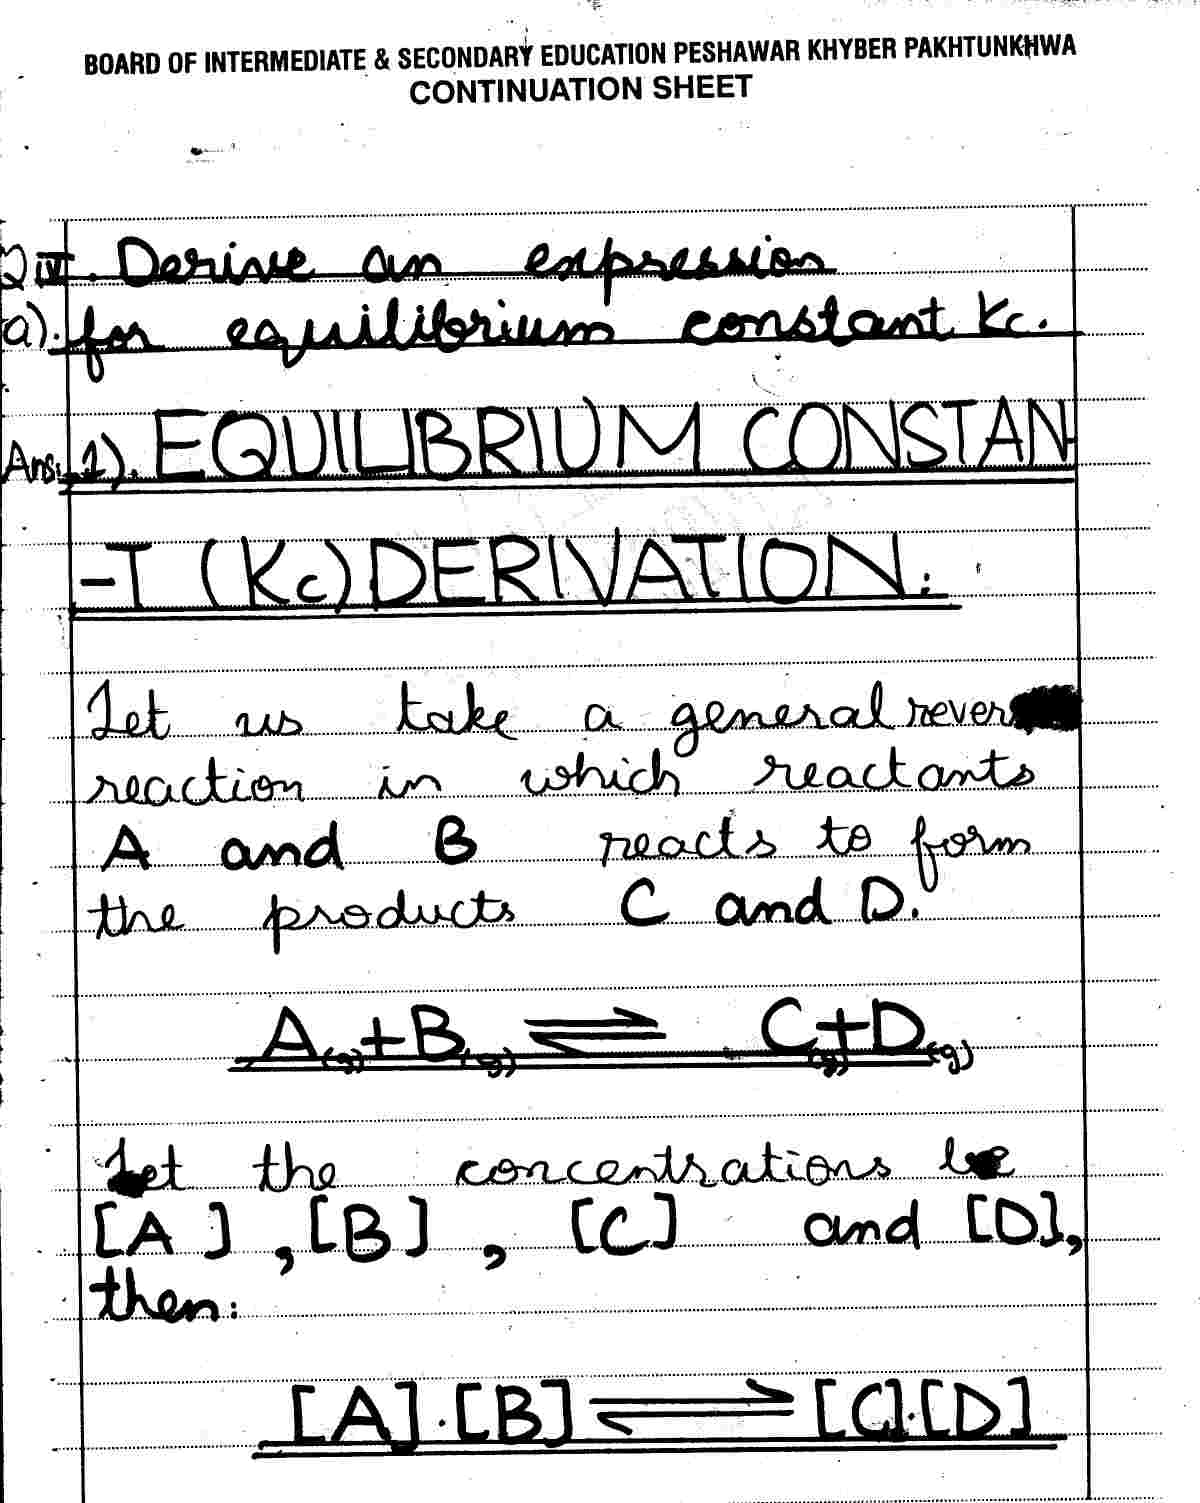 BOARD OF INTERMEDIATE & SECONDARY EDUCATION PESHAWAR KHYBER PAKHTUNKHWA
CONTINUATION SHEET
Q iv. Derive an expression
a). for equilibrium constant Kc.
Ans: 1). EQUILIBRIUM CONSTAN-
-T (Kc) DERIVATION:
Let us take a general rever
reaction in which reactants
A and B reacts to form
the products C and D.
A(g) + B(g) ⇌ C(g) + D(g)
Let the concentrations be
[A], [B], [C] and [D],
then:
[A].[B] ⇌ [C].[D]